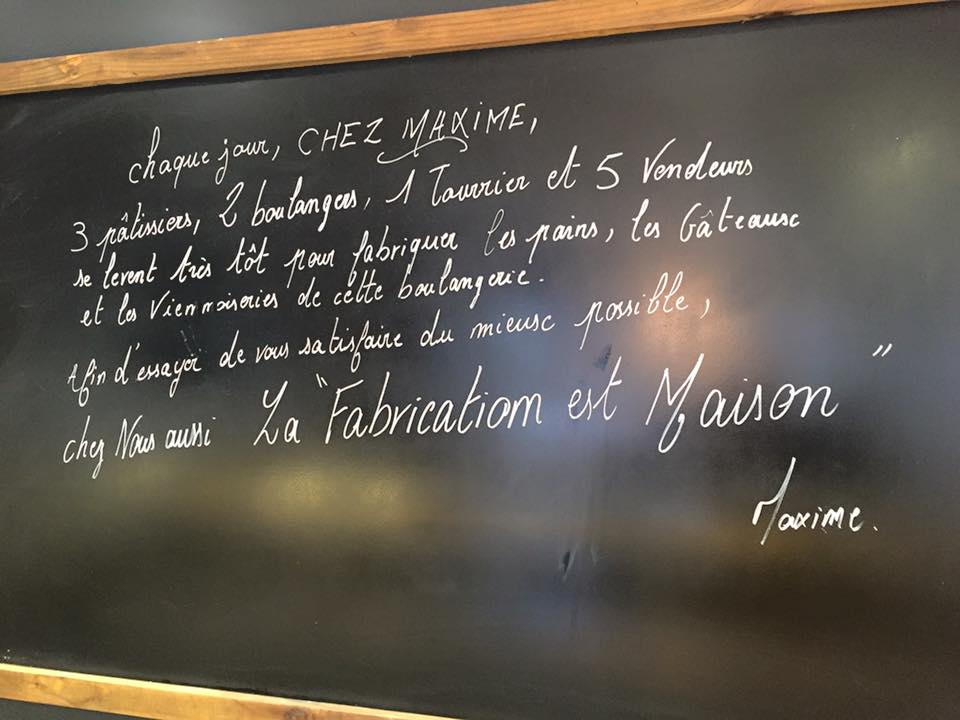 chaque jour, CHEZ MAXIME,
3 pâtissiers, 2 boulangers, 1 Tourrier et 5 Vendeurs
se levent très tôt pour fabriquer les pains, les Gâteaux
et les Viennoiseries de cette boulangerie.
Afin d'essayer de vous satisfaire du mieux possible,
chez Nous aussi La "Fabrication est Maison"
Maxime.